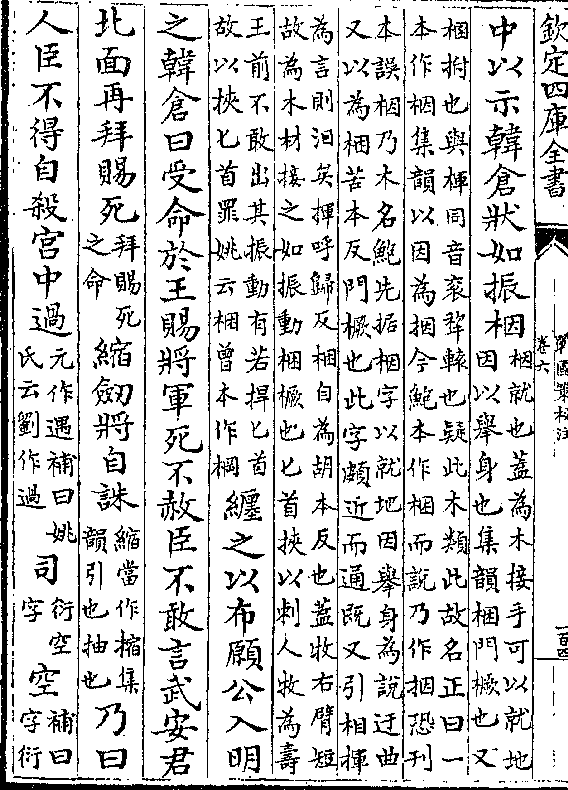 欽定四庫全書
戰國策校注
卷六
中以示韓倉狀如振梱梱就也蓋為木接手可以就地
因以舉身也集韻梱門橛也又
梱拊也與楎同音衮犂轅也疑此木類此故名正曰一
本作梱集韻以因為捆今鮑本作梱而說乃作捆恐刋
本誤梱乃木名鮑先据梱字以就地因舉身為說迂曲
又以為梱苦本反門橛也此字頗近而通既又引相楎
為言則汩矣揮呼歸反梱自為胡本反也蓋牧右臂短
故為木材接之如振動梱橛也匕首挾以刺人牧為壽
王前不敢出其振動有若捍匕首
故以挾匕首罪姚云梱曾本作棡
纒之以布願公入明
之韓倉曰受命於王賜將軍死不赦臣不敢言武安君
北面再拜賜死拜賜死
之命縮劒將自誅縮當作㨄集
韻引也抽也乃曰
人臣不得自殺宮中過元作遇補曰姚
氏云劉作過司衍空
字空補曰
字衍